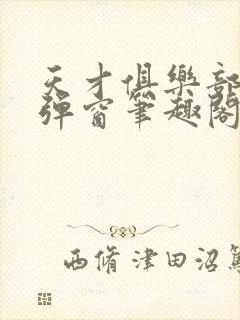 天才俱樂部
彈窗筆趣閣
西脩津田沼篤